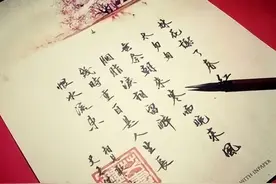 林花謝了春紅
太匆匆
無奈朝來寒雨晚來風
胭脂淚相留醉
幾時重自是人生長
恨水長東
相見歡